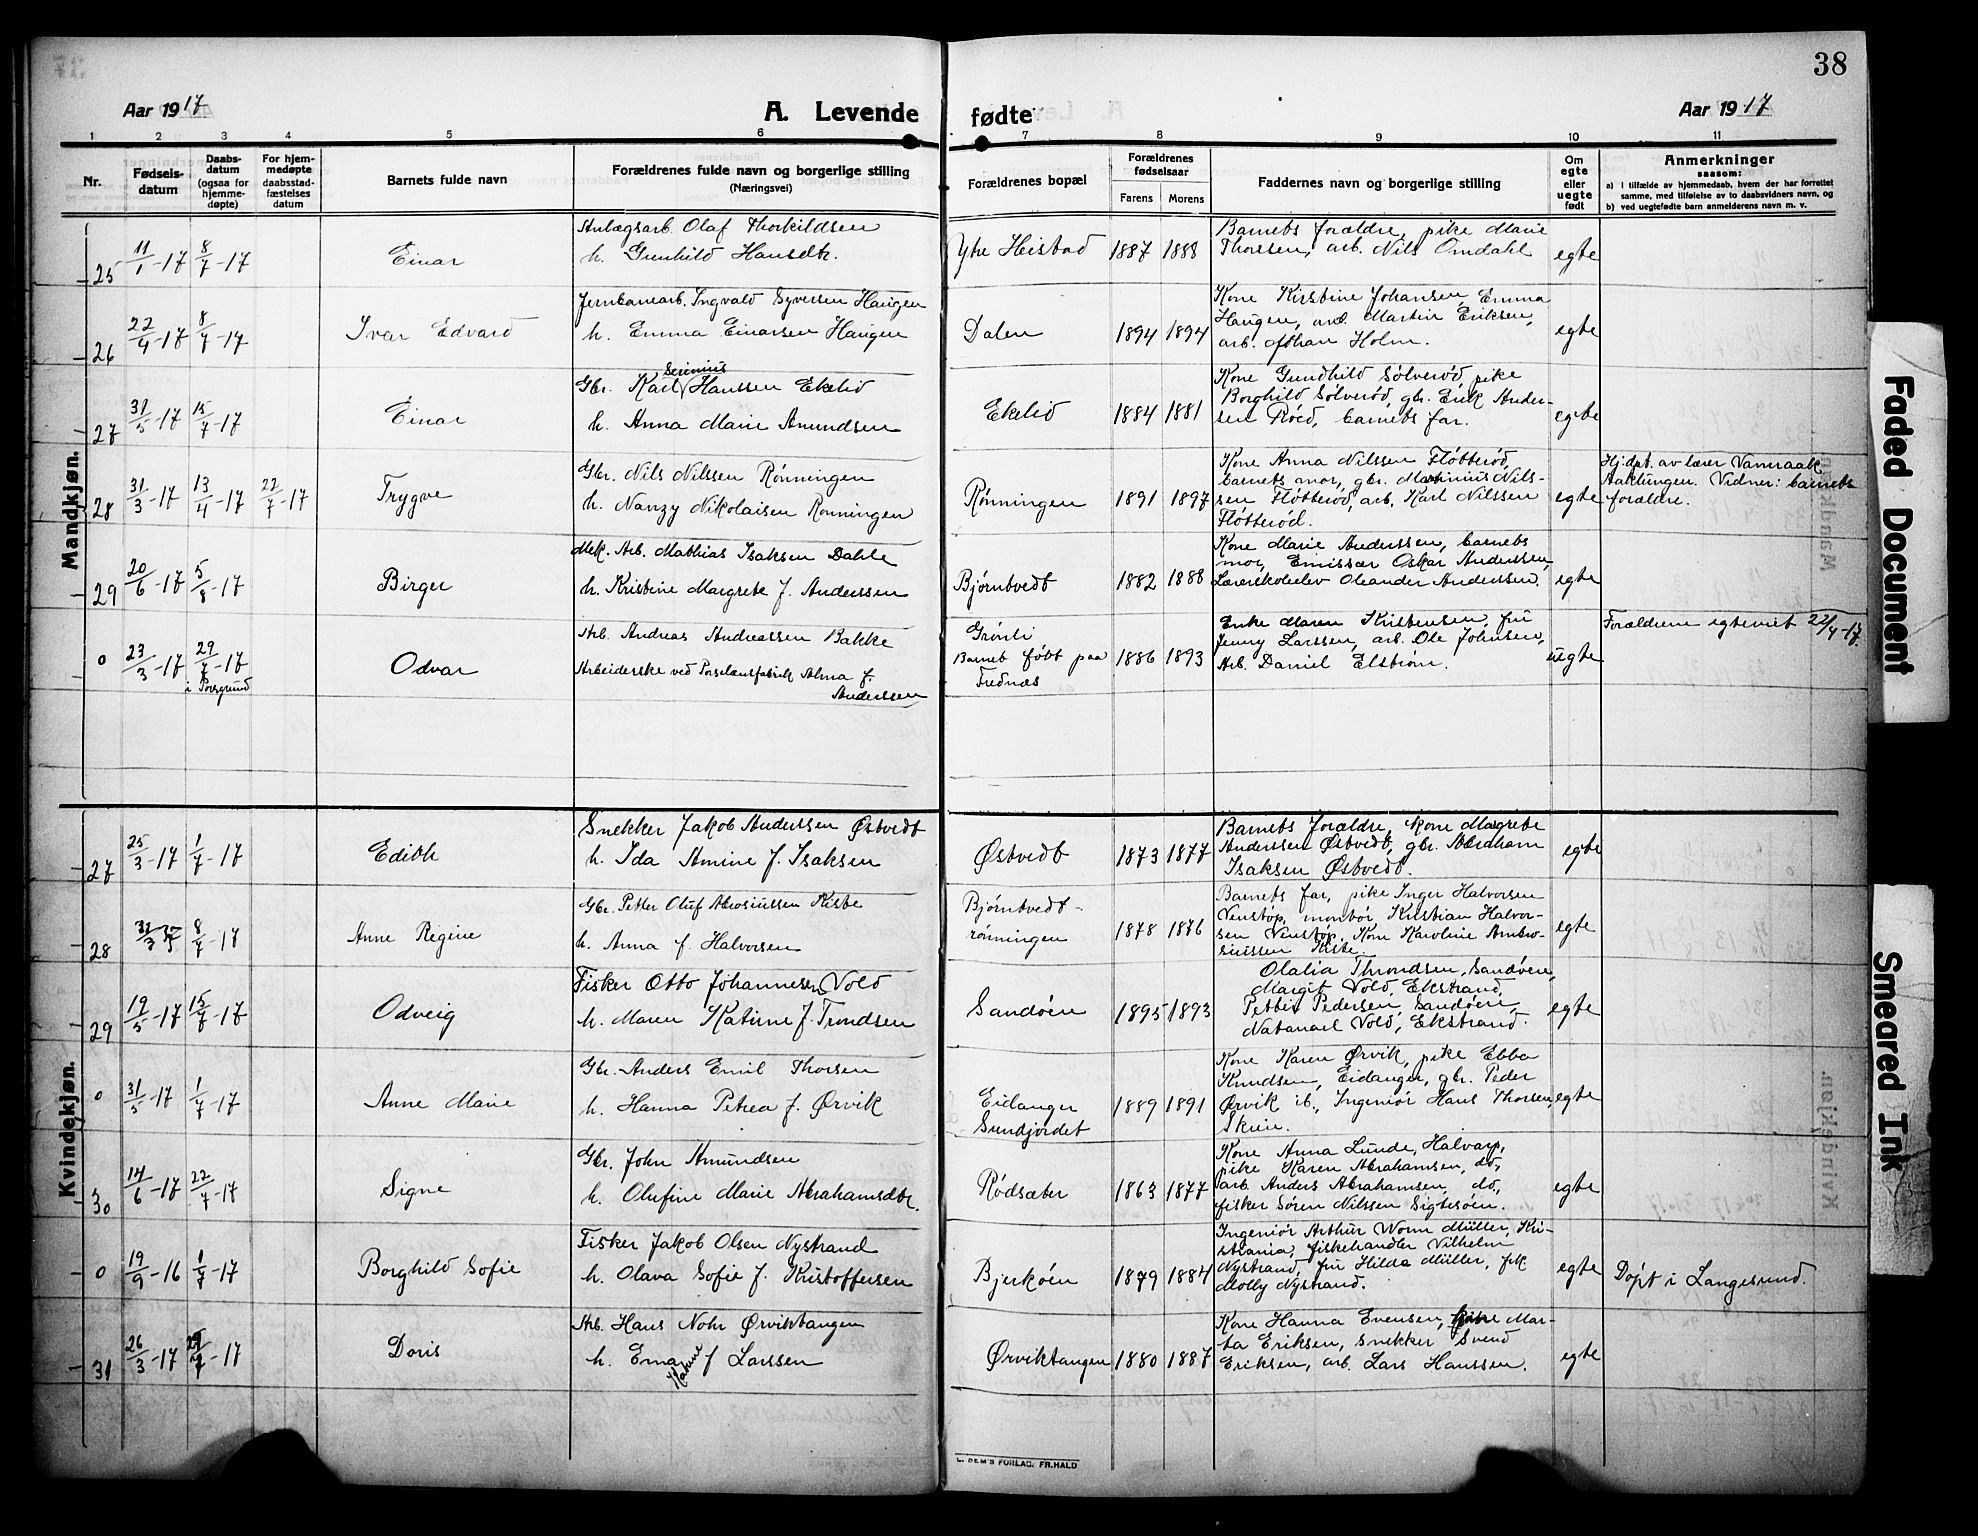 38
Aar 1917
A. Levende
fødte
Aar 1917
1 2 3 4 5 6 7 8 9 10 11
Nr.
Fødsels-
datum
Daabs-
datum
(ogsaa for
hjemme-
døpte)
For hjem-
medøpte
daabsstad-
fæstelses
datum
Barnets fulde navn
Forældrenes fulde navn og borgerlige stilling
(Næringsvei)
Forældrenes bopæl
Forældrenes
fødselsaar
Farens Morens
Faddernes navn og borgerlige stilling
Om
egte
eller
uegte
født
Anmerkninger
saasom:
a) i tilfælde av hjemmedaab, hvem der har forrettet
samme, med tilføielse av to daabsvidners navn, og
b) ved uegtefødte barn anmelderens navn m. v.
Mandkjøn.
25 11/1-17 8/7-17 Einar
Anlægsarb. Olaf Thorkildsen
h. Gunhild Hansdtr.
Ytre Heistad 1887 1888
Barnets forældre, pike Marie
Thorsen, arb. Nils Omdahl
egte
26 22/4-17 8/7-17 Ivar Edvard
Jernbanearb. Ingvald Syversen Haugen
h. Emma Einarsen Haugen
Dalen 1894 1894
Kone Kirstine Johansen, Emma
Haugen, arb. Martin Eriksen,
arb. Johan Holm.
egte
27 31/5-17 15/7-17 Einar
Severius
Gbr. Karl Hanssen Ekelid
h. Anna Marie Amundsen
Ekelid 1884 1881
Kone Gundhild Sølverød, pike
Borghild Sølverød, gbr. Erik Ander-
sen Røed, barnets far.
egte
28 31/3-17 13/4-17 22/7-17 Trygve
Gbr. Nils Nilssen Rønningen
h. Nanzy Nikolaisen Rønningen
Rønningen 1891 1897
Kone Anna Nilssen Fløtterød,
barnets mor, gbr. Martinius Nils-
sen Fløtterød, arb. Karl Nilssen
Fløtterød.
egte
Hj.dpt. av lærer Vannraak
Aaklungen. Vidner: barnets
forældre.
29 20/6-17 5/8-17 Birger
Mek. Arb. Mathias Isaksen Dahle
h. Kristine Margrete f. Anderssen
Bjørntvedt 1882 1888
Kone Marie Anderssen, barnets
mor, Emissær Oskar Anderssen,
Lærerskoleelev Oleander Anderssen.
egte
0 23/3-17 29/7-17 i Porsgrund Odvar
Arb. Andreas Andreassen Bakke
Arbeiderske ved Porselænsfabrik Alma f.
Anderssen
Grønli
Barnet født paa
Frednæs
1886 1893
Enke Maren Kristensen, fru
Jenny Larssen, arb. Ole Johnsen,
Arb. Daniel Elstrøm.
uegte
Forældrene egteviet 22/4-17.
Kvindekjøn.
27 25/3-17 1/7-17 Edith
Snekker Jakob Anderssen Østvedt
h. Ida Amine f. Isaksen
Østvedt 1873 1877
Barnets forældre, kone Margrete
Anderssen Østvedt, gbr. Abraham
Isaksen Østvedt.
egte
28 8/7-17 Anne Regine
Gbr. Petter Oluf Abrosiussen Kiste
h. Anna f. Halvorsen
Bjørntvedt-
rønningen
1878 1876
Barnets far, pike Inger Halvorsen
Venstøp, montør Kristian Halvor-
sen Venstøp, Kone Karoline Ambro-
siussen Kiste.
egte
29 19/5-17 15/7-17 Odveig
Fisker Otto Johannesen Vold
h. Maren Katrine f. Trondsen
Sandøen 1895 1893
Olalia Throndsen, Sandøen,
Margit Vold, Ekstrand,
Petter Pedersen, Sandøen,
Natanael Vold, Ekstrand.
egte
0 31/5-17 1/7-17 Anne Marie
Gbr. Anders Emil Thorsen
h. Hanna Petrea f. Ørvik
Eidanger
Sundjordet
1889 1891
Kone Karen Ørvik, pike Ebba
Knudsen, Eidanger, gbr. Peder
Ørvik ib., Ingeniør Hans Thorsen,
Skien.
egte
30 14/6-17 22/7-17 Signe
Gbr. John Amundsen
h. Olufine Marie Abrahamsdtr.
Rødsæter 1863 1877
Kone Anna Lunde, Halvarp,
pike Karen Abrahamsen, do,
arb. Anders Abrahamsen, do.,
fisker Søren Nilssen Sigtesøen.
egte
0 19/9-16 1/7-17 Borghild Sofie
Fisker Jakob Olsen Nystrand
h. Olava Sofie f. Kristoffersen
Bjerkøen 1879 1884
Ingeniør Arthur Worm Müller, Kri-
stiania, fiskehandler Vilhelm
Nystrand, fru Hilda Müller, frk.
Molly Nystrand.
egte
Døpt i Langesund.
31 26/3-17 29/7-17 Doris
Arb. Hans Nohr Ørviktangen
h. Erna f Larssen
Ørviktangen 1880 1887
Kone Hanna Evensen, pike Mar-
ta Eriksen, snekker Svend
Eriksen, arb. Lars Hanssen.
egte
E. SEM'S FORLAG, FR.HALD
Faded Document
Smeared Ink